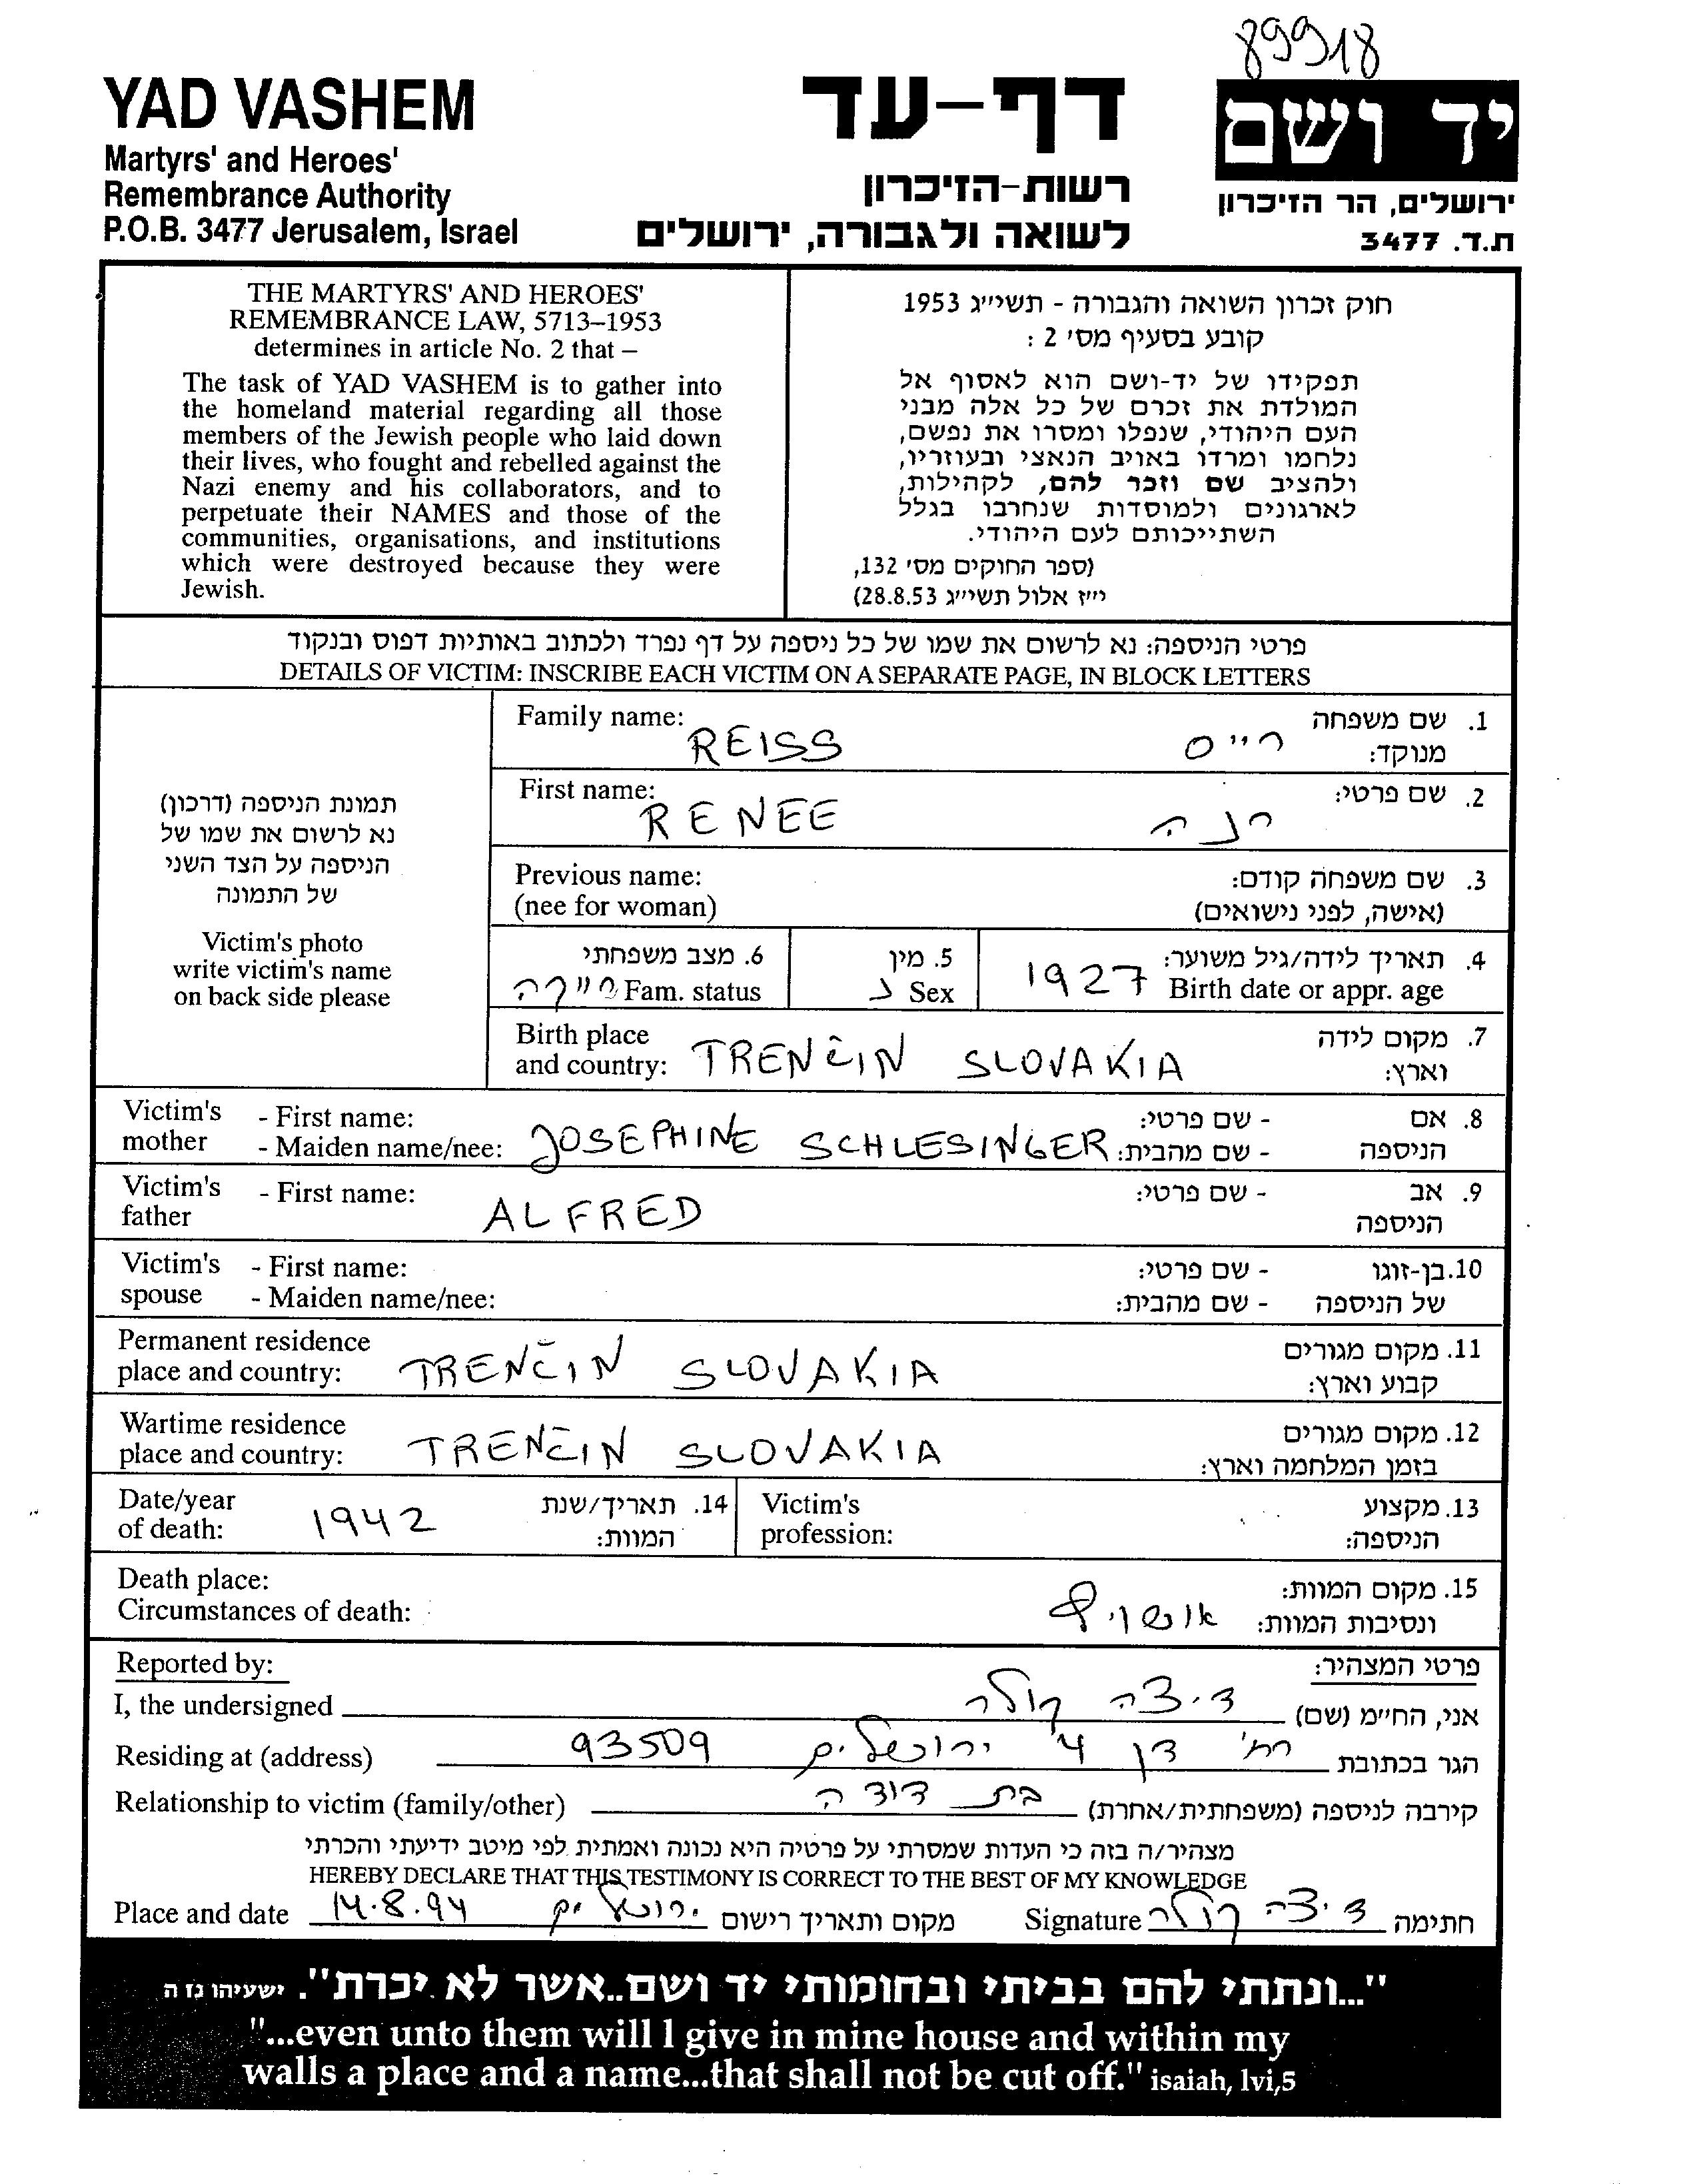 89918
YAD VASHEM
Martyrs' and Heroes'
Remembrance Authority
P.O.B. 3477 Jerusalem, Israel
דף-עד
רשות-הזיכרון
לשואה ולגבורה, ירושלים
יד ושם
ירושלים, הר הזיכרון
ת.ד. 3477
THE MARTYRS' AND HEROES'
REMEMBRANCE LAW, 5713–1953
determines in article No. 2 that –
The task of YAD VASHEM is to gather into
the homeland material regarding all those
members of the Jewish people who laid down
their lives, who fought and rebelled against the
Nazi enemy and his collaborators, and to
perpetuate their NAMES and those of the
communities, organisations, and institutions
which were destroyed because they were
Jewish.
חוק זכרון השואה והגבורה - תשי״ג 1953
קובע בסעיף מס׳ 2 :
תפקידו של יד-ושם הוא לאסוף אל
המולדת את זכרם של כל אלה מבני
העם היהודי, שנפלו ומסרו את נפשם,
נלחמו ומרדו באויב הנאצי ובעוזריו,
ולהציב שם וזכר להם, לקהילות,
לארגונים ולמוסדות שנחרבו בגלל
השתייכותם לעם היהודי.
(ספר החוקים מס׳ 132,
י״ז אלול תשי״ג 28.8.53)
פרטי הניספה: נא לרשום את שמו של כל ניספה על דף נפרד ולכתוב באותיות דפוס ובנקוד
DETAILS OF VICTIM: INSCRIBE EACH VICTIM ON A SEPARATE PAGE, IN BLOCK LETTERS
תמונת הניספה (דרכון)
נא לרשום את שמו של
הניספה על הצד השני
של התמונה
Victim's photo
write victim's name
on back side please
Family name: REISS רייס 1. שם משפחה
מנוקד:
First name: RENEE רנה 2. שם פרטי:
Previous name: 3. שם משפחה קודם:
(nee for woman) (אישה, לפני נישואים)
6. מצב משפחתי 5. מין 4. תאריך לידה/גיל משוער:
Fam. status Sex נ 1927 Birth date or appr. age
Birth place 7. מקום לידה
and country: TRENČIN SLOVAKIA וארץ:
Victim's - First name: - שם פרטי: 8. אם
mother - Maiden name/nee: JOSEPHINE SCHLESINGER - שם מהבית: הניספה
Victim's - First name: - שם פרטי: 9. אב
father ALFRED הניספה
Victim's - First name: - שם פרטי: 10. בן-זוגו
spouse - Maiden name/nee: - שם מהבית: של הניספה
Permanent residence 11. מקום מגורים
place and country: TRENČIN SLOVAKIA קבוע וארץ:
Wartime residence 12. מקום מגורים
place and country: TRENČIN SLOVAKIA בזמן המלחמה וארץ:
Date/year 14. תאריך/שנת Victim's 13. מקצוע
of death: 1942 המוות: profession: הניספה:
Death place: 15. מקום המוות:
Circumstances of death: אושויץ ונסיבות המוות:
Reported by: פרטי המצהיר:
I, the undersigned אני, החי״מ (שם)
Residing at (address) 93509 ירושלים 4 דן רח' הגר בכתובת
Relationship to victim (family/other) בת דודה קירבה לניספה (משפחתית/אחרת)
מצהיר/ה בזה כי העדות שמסרתי על פרטיה היא נכונה ואמתית לפי מיטב ידיעתי והכרתי
HEREBY DECLARE THAT THIS TESTIMONY IS CORRECT TO THE BEST OF MY KNOWLEDGE
Place and date 14.8.94 ירושלים מקום ותאריך רישום Signature חתימה
"...ונתתי להם בביתי ובחומותי יד ושם..אשר לא יכרת". ישעיהו נו ה
"...even unto them will I give in mine house and within my
walls a place and a name...that shall not be cut off." isaiah, lvi,5